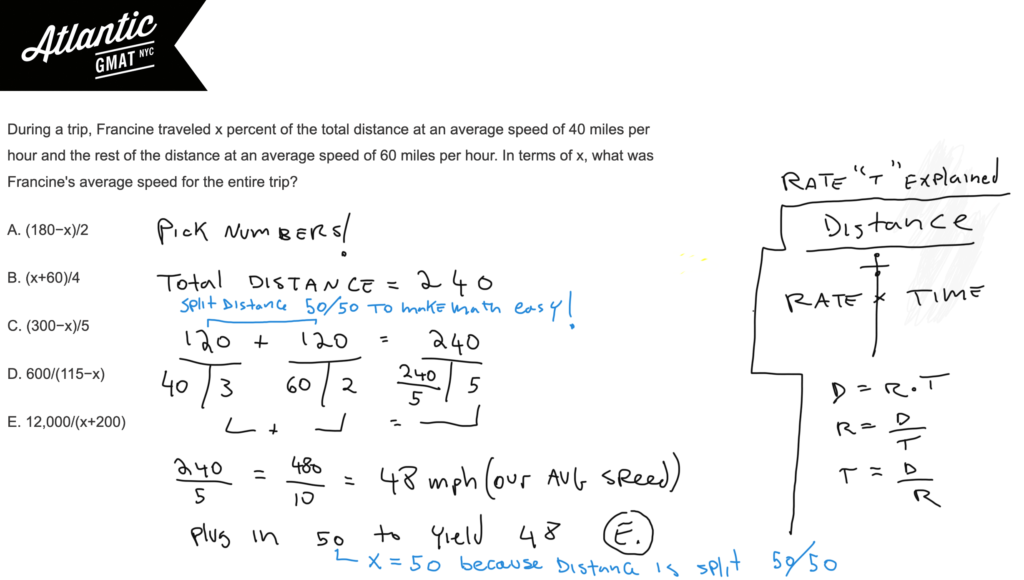 Atlantic
GMAT NYC
During a trip, Francine traveled x percent of the total distance at an average speed of 40 miles per
hour and the rest of the distance at an average speed of 60 miles per hour. In terms of x, what was
Francine's average speed for the entire trip?
A. (180−x)/2
B. (x+60)/4
C. (300−x)/5
D. 600/(115−x)
E. 12,000/(x+200)
PICK NUMBERS!
TOTAL DISTANCE = 240
SPLIT DISTANCE 50/50 TO MAKE MATH EASY!
120 + 120 = 240
40 | 3 60 | 2 240/5 | 5
+ =
240/5 = 480/10 = 48 mph (OUR AVG SPEED)
Plug in 50 to yield 48 E.
x = 50 because DISTANCE is split 50/50
RATE "T" Explained
Distance
÷
RATE × TIME
D = R·T
R = D/T
T = D/R